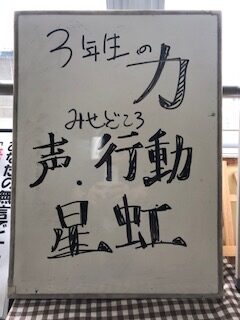 3年生の力
みせどころ
声.行動
星、虹、